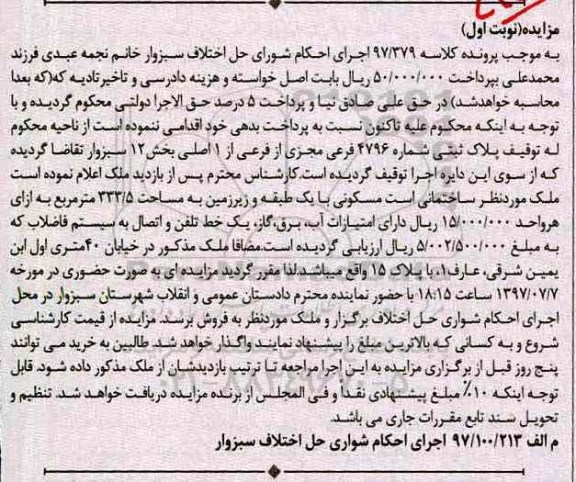 مزایده(نوبت اول)
به موجب پرونده کلاسه ۹۷/۳۷۹ اجرای احکام شورای حل اختلاف سبزوار خانم نجمه عبدی فرزند
محمدعلی بپرداخت ۵۰/۰۰۰/۰۰۰ ریال بابت اصل خواسته و هزینه دادرسی و تاخیرتادیه که(که بعدا
محاسبه خواهدشد) در حق علی صادق نیا و پرداخت ۵ درصد حق الاجرا دولتی محکوم گردیده و با
توجه به اینکه محکوم علیه تاکنون نسبت به پرداخت بدهی خود اقدامی ننموده است از ناحیه محکوم
له توقیف پلاک ثبتی شماره ۴۷۹۶ فرعی مجزی از فرعی از ۱ اصلی بخش۱۲ سبزوار تقاضا گردیده
که از سوی این دایره اجرا توقیف گردیده است.کارشناس محترم پس از بازدید ملک اعلام نموده است
ملک موردنظر ساختمانی است مسکونی با یک طبقه و زیرزمین به مساحت ۳۳۳/۵ مترمربع به ازای
هرواحد ۱۵/۰۰۰/۰۰۰ ریال دارای امتیازات آب، برق،گاز، یک خط تلفن و اتصال به سیستم فاضلاب که
به مبلغ ۵/۰۰۲/۵۰۰/۰۰۰ ریال ارزیابی گردیده است.مضافا ملک مذکور در خیابان ۴۰متری اول ابن
یمین شرقی، عارف۱، با پلاک ۱۵ واقع میباشد.لذا مقرر گردید مزایده ای به صورت حضوری در مورخه
۱۳۹۷/۰۷/۷ ساعت ۱۸:۱۵ با حضور نماینده محترم دادستان عمومی و انقلاب شهرستان سبزوار در محل
اجرای احکام شواری حل اختلاف برگزار و ملک موردنظر به فروش برسد. مزایده از قیمت کارشناسی
شروع و به کسانی که بالاترین مبلغ را پیشنهاد نمایند واگذار خواهد شد. طالبین به خرید می توانند
پنج روز قبل از برگزاری مزایده به این اجرا مراجعه تا ترتیب بازدیدشان از ملک مذکور داده شود. قابل
توجه اینکه ۱۰٪ مبلغ پیشنهادی نقدا و فی المجلس از برنده مزایده دریافت خواهد شد. تنظیم و
تحویل سند تابع مقررات جاری می باشد.
م الف ۹۷/۱۰۰/۲۱۳ اجرای احکام شواری حل اختلاف سبزوار